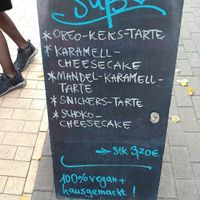 Süß
* OREO-KEKS-TARTE
* KARAMELL-
CHEESECAKE
* MANDEL-KARAMELL-
TARTE
* SNICKERS-TARTE
* SCHOKO-
CHEESECAKE
→ Stk 3,20€
100% vegan +
hausgemacht!